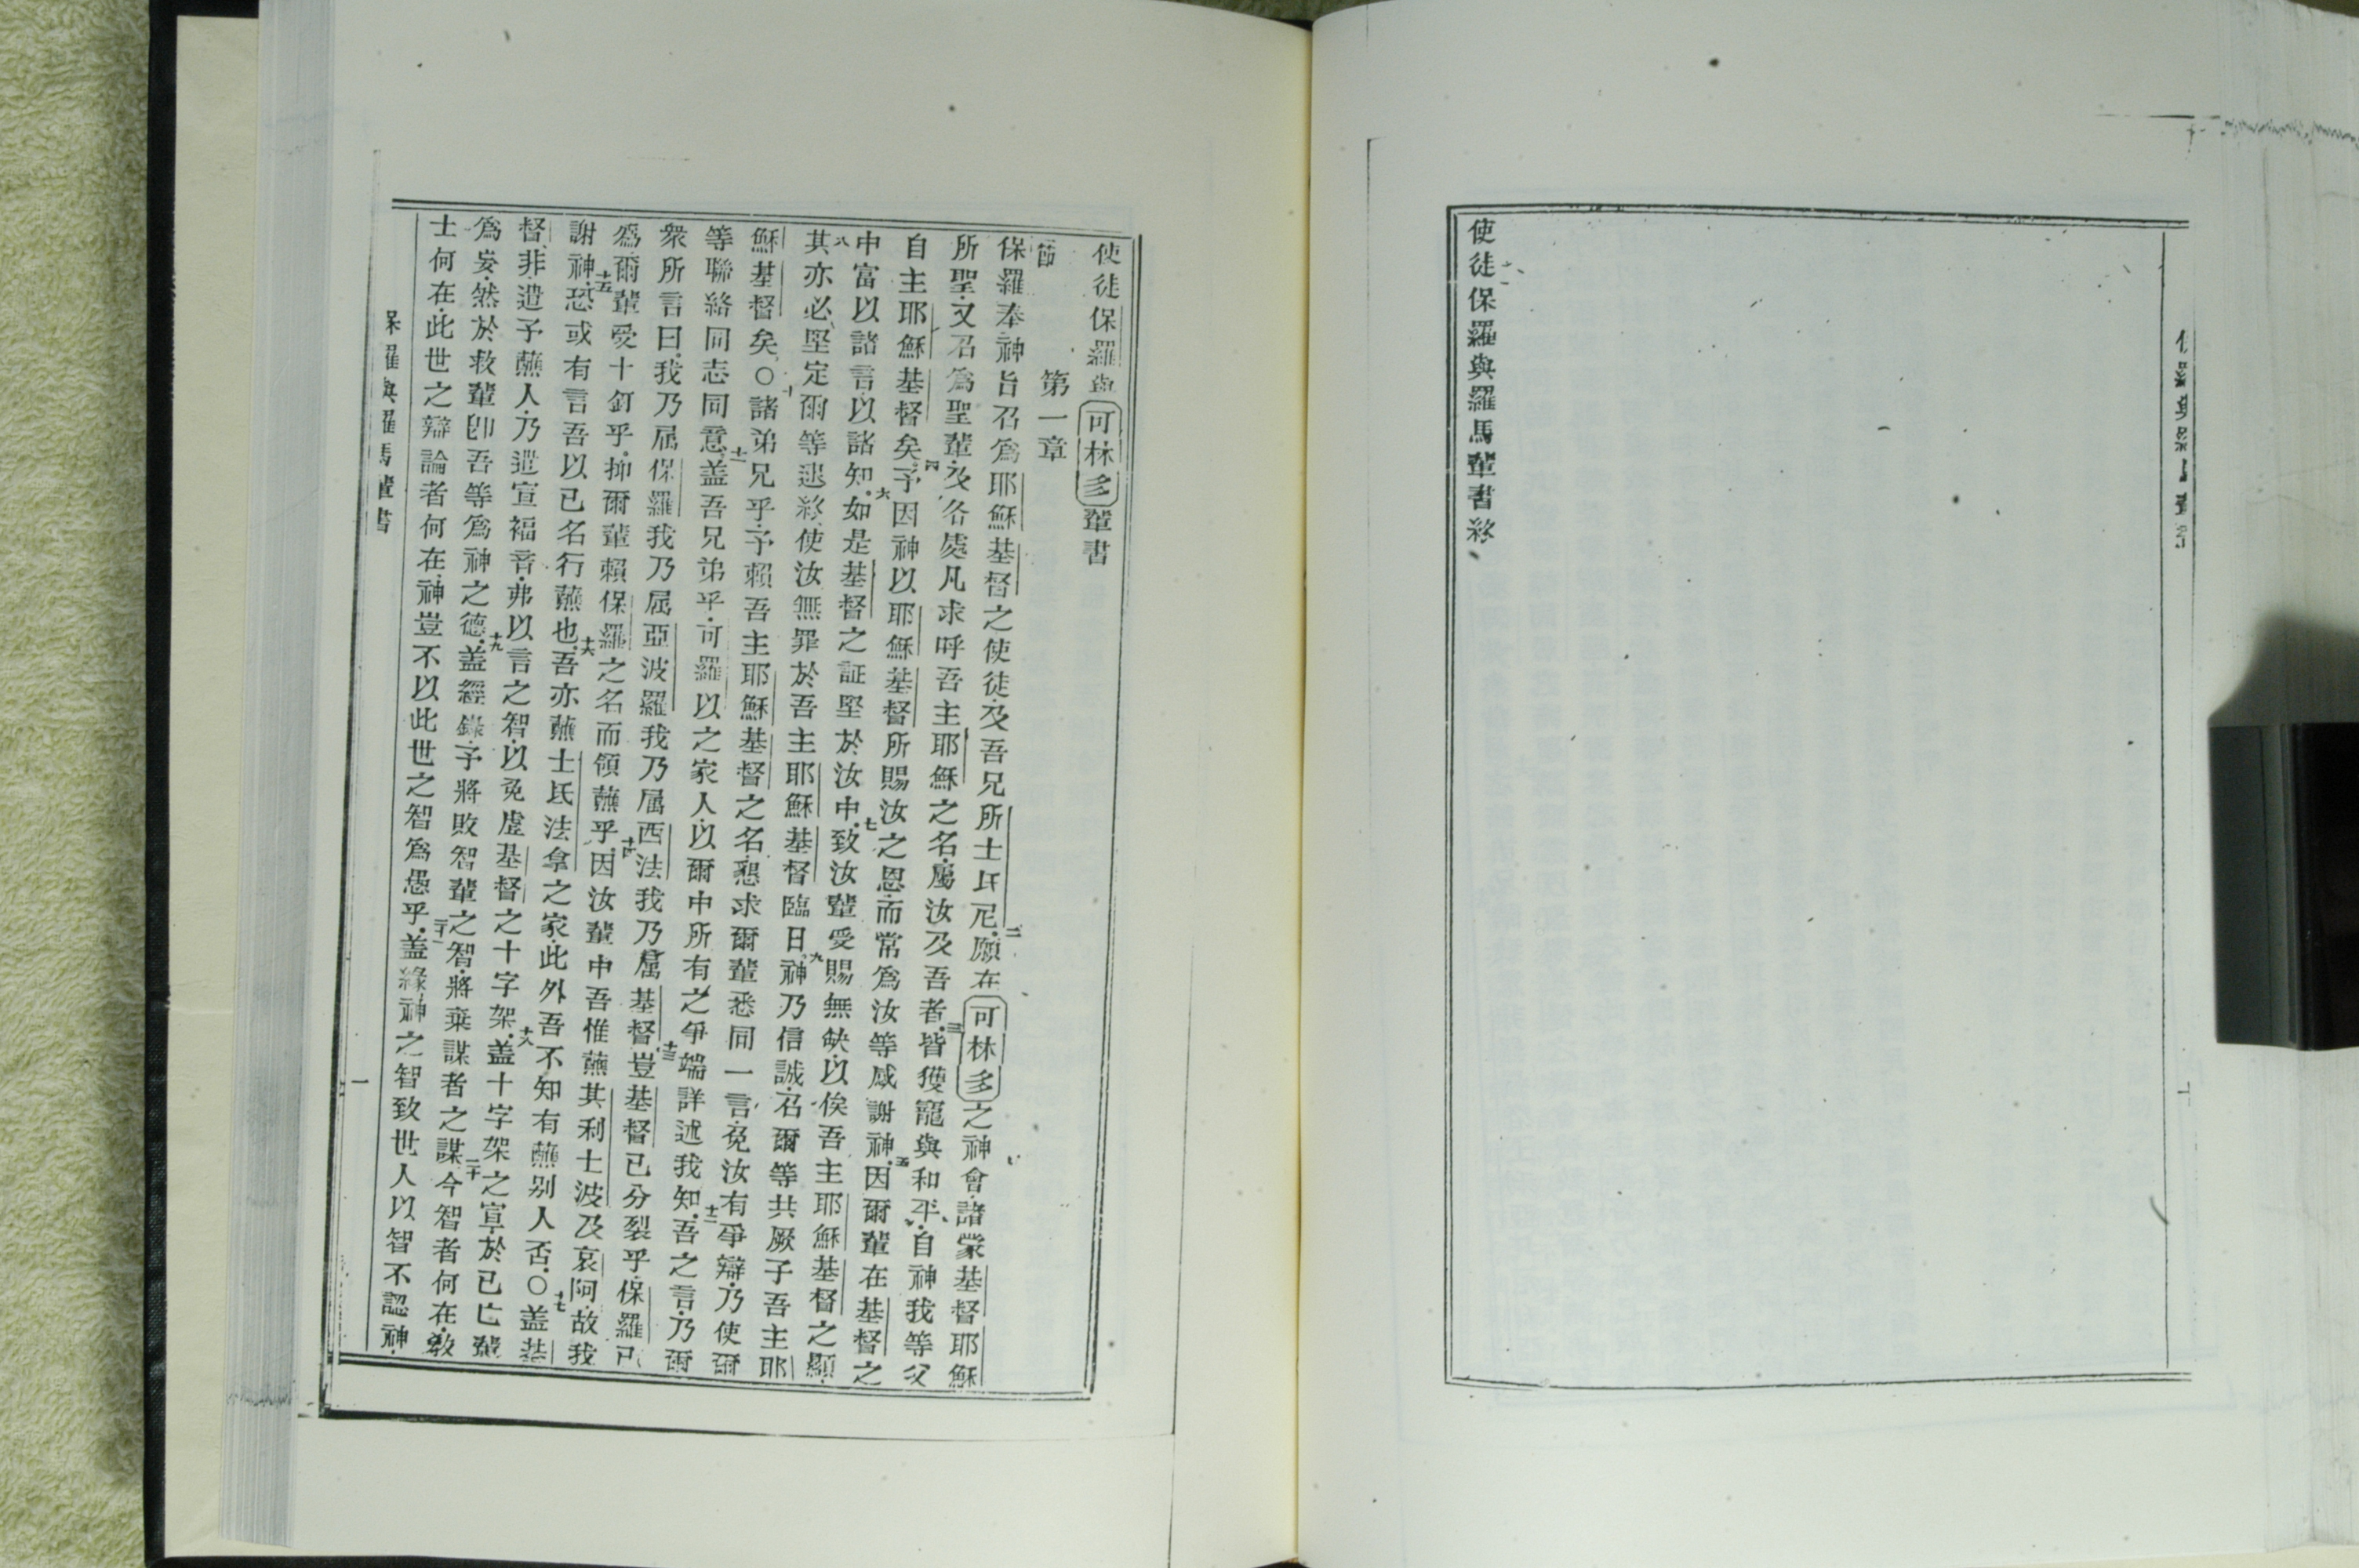 使徒保羅與羅馬輩書終
使徒保羅與可林多輩書
節
第一章
保羅奉神旨召爲耶穌基督之使徒及吾兄所士氐尼二願在可林多之神會諸蒙基督耶穌
所聖又召爲聖輩及各處凡求呼吾主耶穌之名屬汝及吾者三皆獲寵與和平自神我等父
自主耶穌基督矣四予因神以耶穌基督所賜汝之恩而常爲汝等感謝神五因爾輩在基督之
中富以諸言以諸知六如是基督之証堅於汝中七致汝輩受賜無缺以俟吾主耶穌基督之顯
八其亦必堅定爾等迄終使汝無罪於吾主耶穌基督臨日九神乃信誠召爾等共厥子吾主耶
穌基督矣〇十諸弟兄乎予賴吾主耶穌基督之名懇求爾輩悉同一言免汝有爭辯乃使爾
等聯絡同志同意十一盖吾兄弟乎可羅以之家人以爾中所有之爭端詳述我知十二吾之言乃爾
衆所言曰我乃屬保羅我乃屬亞波羅我乃屬西法我乃屬基督十三豈基督已分裂乎保羅已
爲爾輩受十釘乎抑爾輩賴保羅之名而領蘸乎十四因汝輩中吾惟蘸其利士波及哀阿故我
謝神十五恐或有言吾以己名行蘸也十六吾亦蘸士氐法拿之家此外吾不知有蘸别人否〇十七盖基
督非遣予蘸人乃遣宣福音弗以言之智以免虛基督之十字架十八盖十字架之宣於已亡輩
爲妄然於救輩卽吾等爲神之德十九盖經錄予將敗智輩之智將棄謀者之謀二十今智者何在教
士何在此世之辯論者何在神豈不以此世之智爲愚乎二十一盖緣神之智致世人以智不認神
保羅與羅馬輩書
一